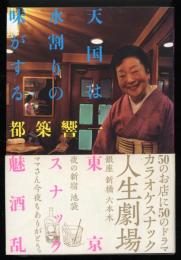 天国は
水割りの
味がする
都築響一
東京
スナック
魅酒乱
50のお店に50のドラマ
カラオケスナック
人生劇場
銀座 新橋 六本木
夜の新宿 池袋
ママさん今夜もありがとう。